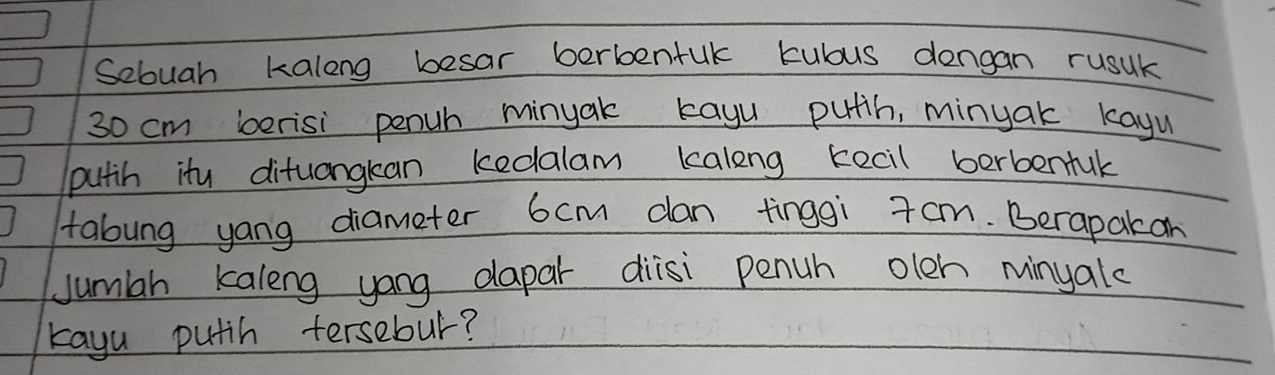 Sebuah kaleng besar berbentuk kubus dengan rusuk
30 cm berisi penuh minyak kayu putih, minyak kayu
putih itu dituangkan kedalam kaleng kecil berbentuk
tabung yang diameter 6cm dan tinggi 7cm. Berapakah
Jumlah kaleng yang dapat diisi penuh oleh minyak
kayu putih tersebut?